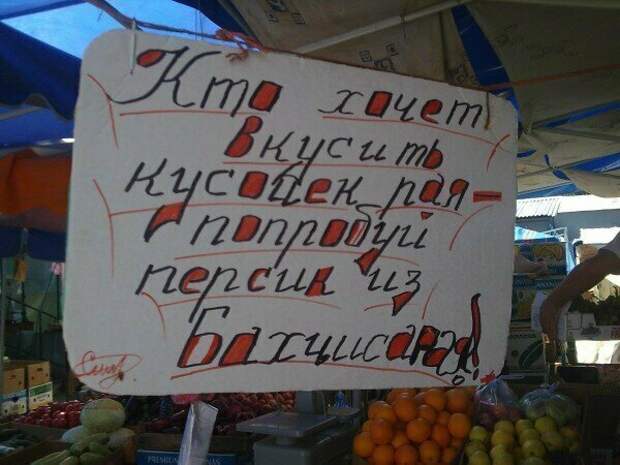 Кто хочет
вкусить
кусочек рая –
попробуй
персик из
Бахчисарая!
PREMIUM